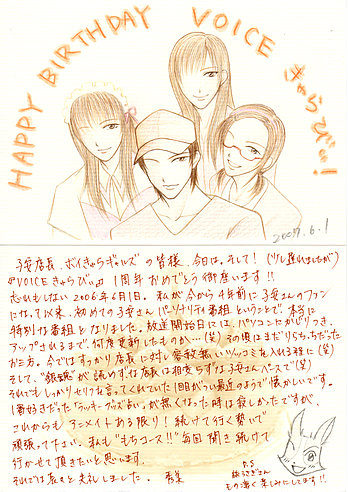 HAPPY BIRTHDAY VOICE きゃらびぃ!
2007.6.1
子安店長、ボイきゃらギャルズの皆様、今日は。そして!(少し遅れましたが)
『VOICEきゃらびぃ』1周年おめでとう御座います!!
忘れもしない2006年4月1日。私が今から4年前に子安さんのファン
になって以来、初めての子安さんパーソナリティ番組ということで、本当に
特別な番組となりました。放送開始日には、パソコンにかじりつき、
アップされるまで何度更新したものか…(笑)その頃はまだぎこちなかった
お三方。今ではすっかり店長に対し容赦無いツッコミを入れる程に(笑)
そして、"銀魂"が読めずな店長は相変らずな子安さんペースで(笑)
それでもしっかりセリフを言ってくれていた1回目がつい最近のようで懐かしいです。
1番好きだった"ラッキーグッズ占い"が無くなった時は寂しかったですが、
これからもアニメイトある限り!続けて行く勢いで
頑張って下さい。私も"もちコース!!"毎回聞き続けて
行かせて頂きたいと思います。
それでは長々と失礼しました。
P.S
もの凄く楽しみにしてます!!